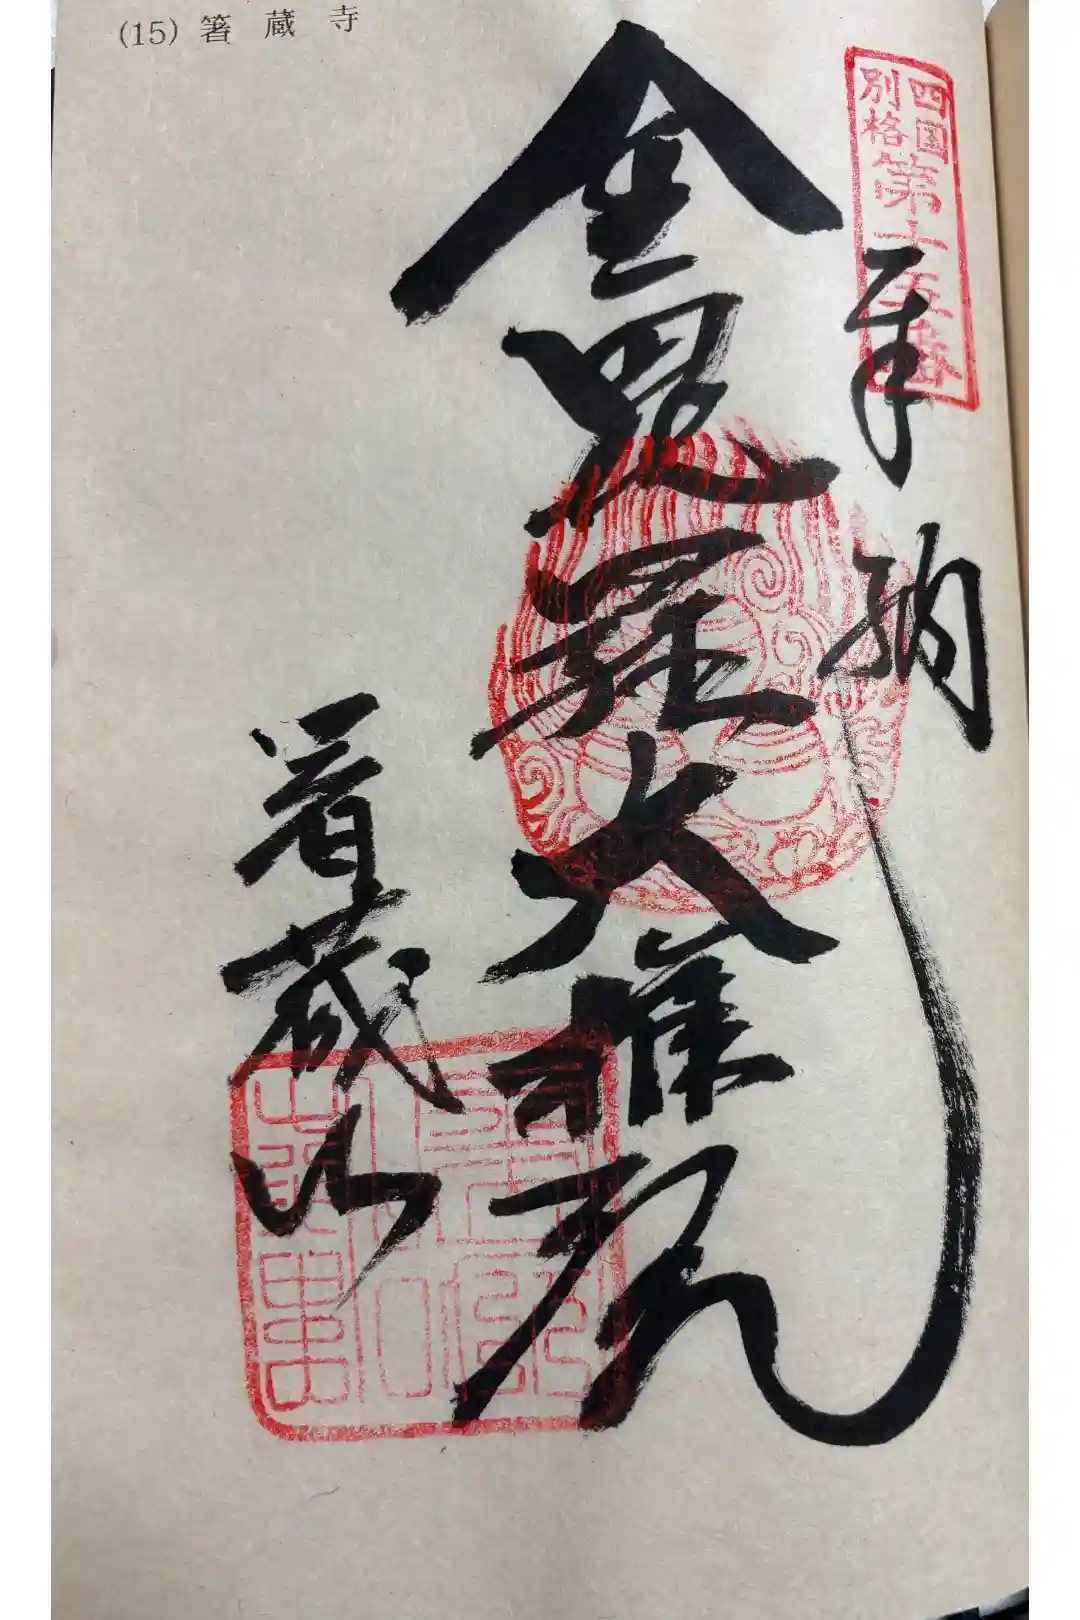 (15) 箸蔵寺
四国
別格
第十五番
奉納
金毘羅大権現
箸蔵山